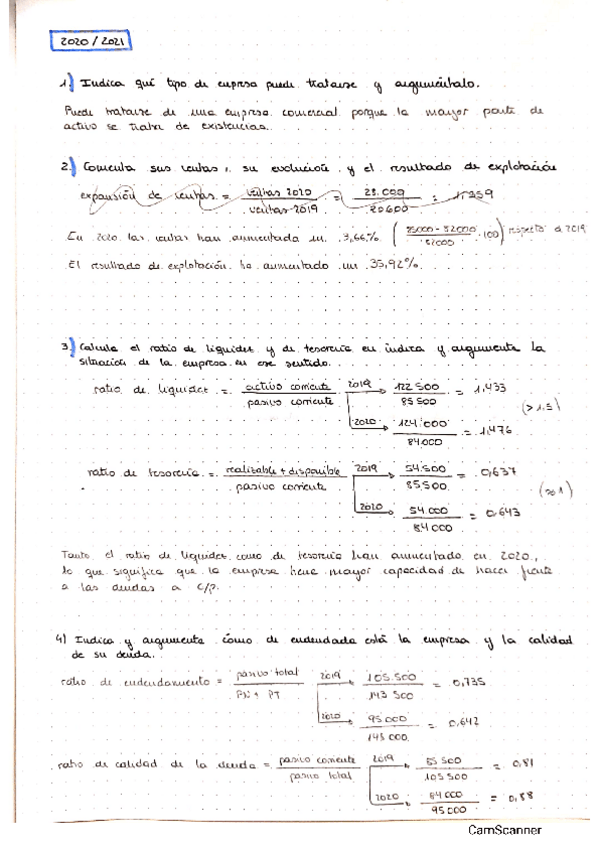 2020/2021
1) Indica qué tipo de empresa puede tratarse y arguméntalo.
Puede tratarse de una empresa comercial porque la mayor parte de
activo se trata de existencias.
2) Comenta sus ventas, su evolución y el resultado de explotación
expansión de ventas = ventas 2020 / ventas 2019 = 28.000 / 20600 =
En 2020 las ventas han aumentado un 3,66% ( 85000 - 82000 / 82000 · 100) respecto a 2019
El resultado de explotación ha aumentado un 35,92%.
3) Calcula el ratio de liquidez y de tesorería e indica y argumenta la
situación de la empresa en ese sentido.
ratio de liquidez = activo corriente / pasivo corriente 2019 → 122 500 / 85 500 = 1,433
(> 1.5)
2020 → 124.000 / 84 000 = 1,476
ratio de tesorería = realizable + disponible / pasivo corriente 2019 → 54.500 / 85,500 = 0,637
(≈ 1)
2020 → 54 000 / 84 000 = 0,643
Tanto el ratio de liquidez como de tesorería han aumentado en 2020,
lo que significa que la empresa tiene mayor capacidad de hacer frente
a las deudas a C/P.
4) Indica y argumenta como de endeudada está la empresa y la calidad
de su deuda.
ratio de endeudamiento = pasivo total / PN + PT 2019 → 105.500 / 143 500 = 0,735
2020 → 95 000 / = 0,642
ratio de calidad de la deuda = pasivo corriente / pasivo total 2019 → 85 500 / 105 500 = 0,81
2020 → 84 000 / 95 000 = 0,88
CamScanner